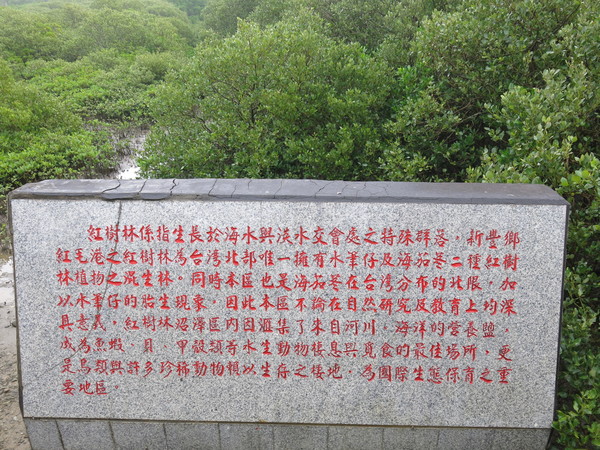 紅樹林係指生長於海水與淡水交會處之特殊群落，新豐鄉
紅毛港之紅樹林為台灣北部唯一擁有水筆仔及海茄苳二種紅樹
林植物之混生林。同時本區也是海茄苳在台灣分布的北限，加
以水筆仔的胎生現象，因此本區不論在自然研究及教育上均深
具意義，紅樹林沼澤區內因滙集了來自河川，海洋的營養鹽，
成為魚蝦，貝，甲殼類等水生動物棲息與覓食的最佳場所，更
是鳥類與許多珍稀動物賴以生存之棲地，為國際生態保育之重
要地區。